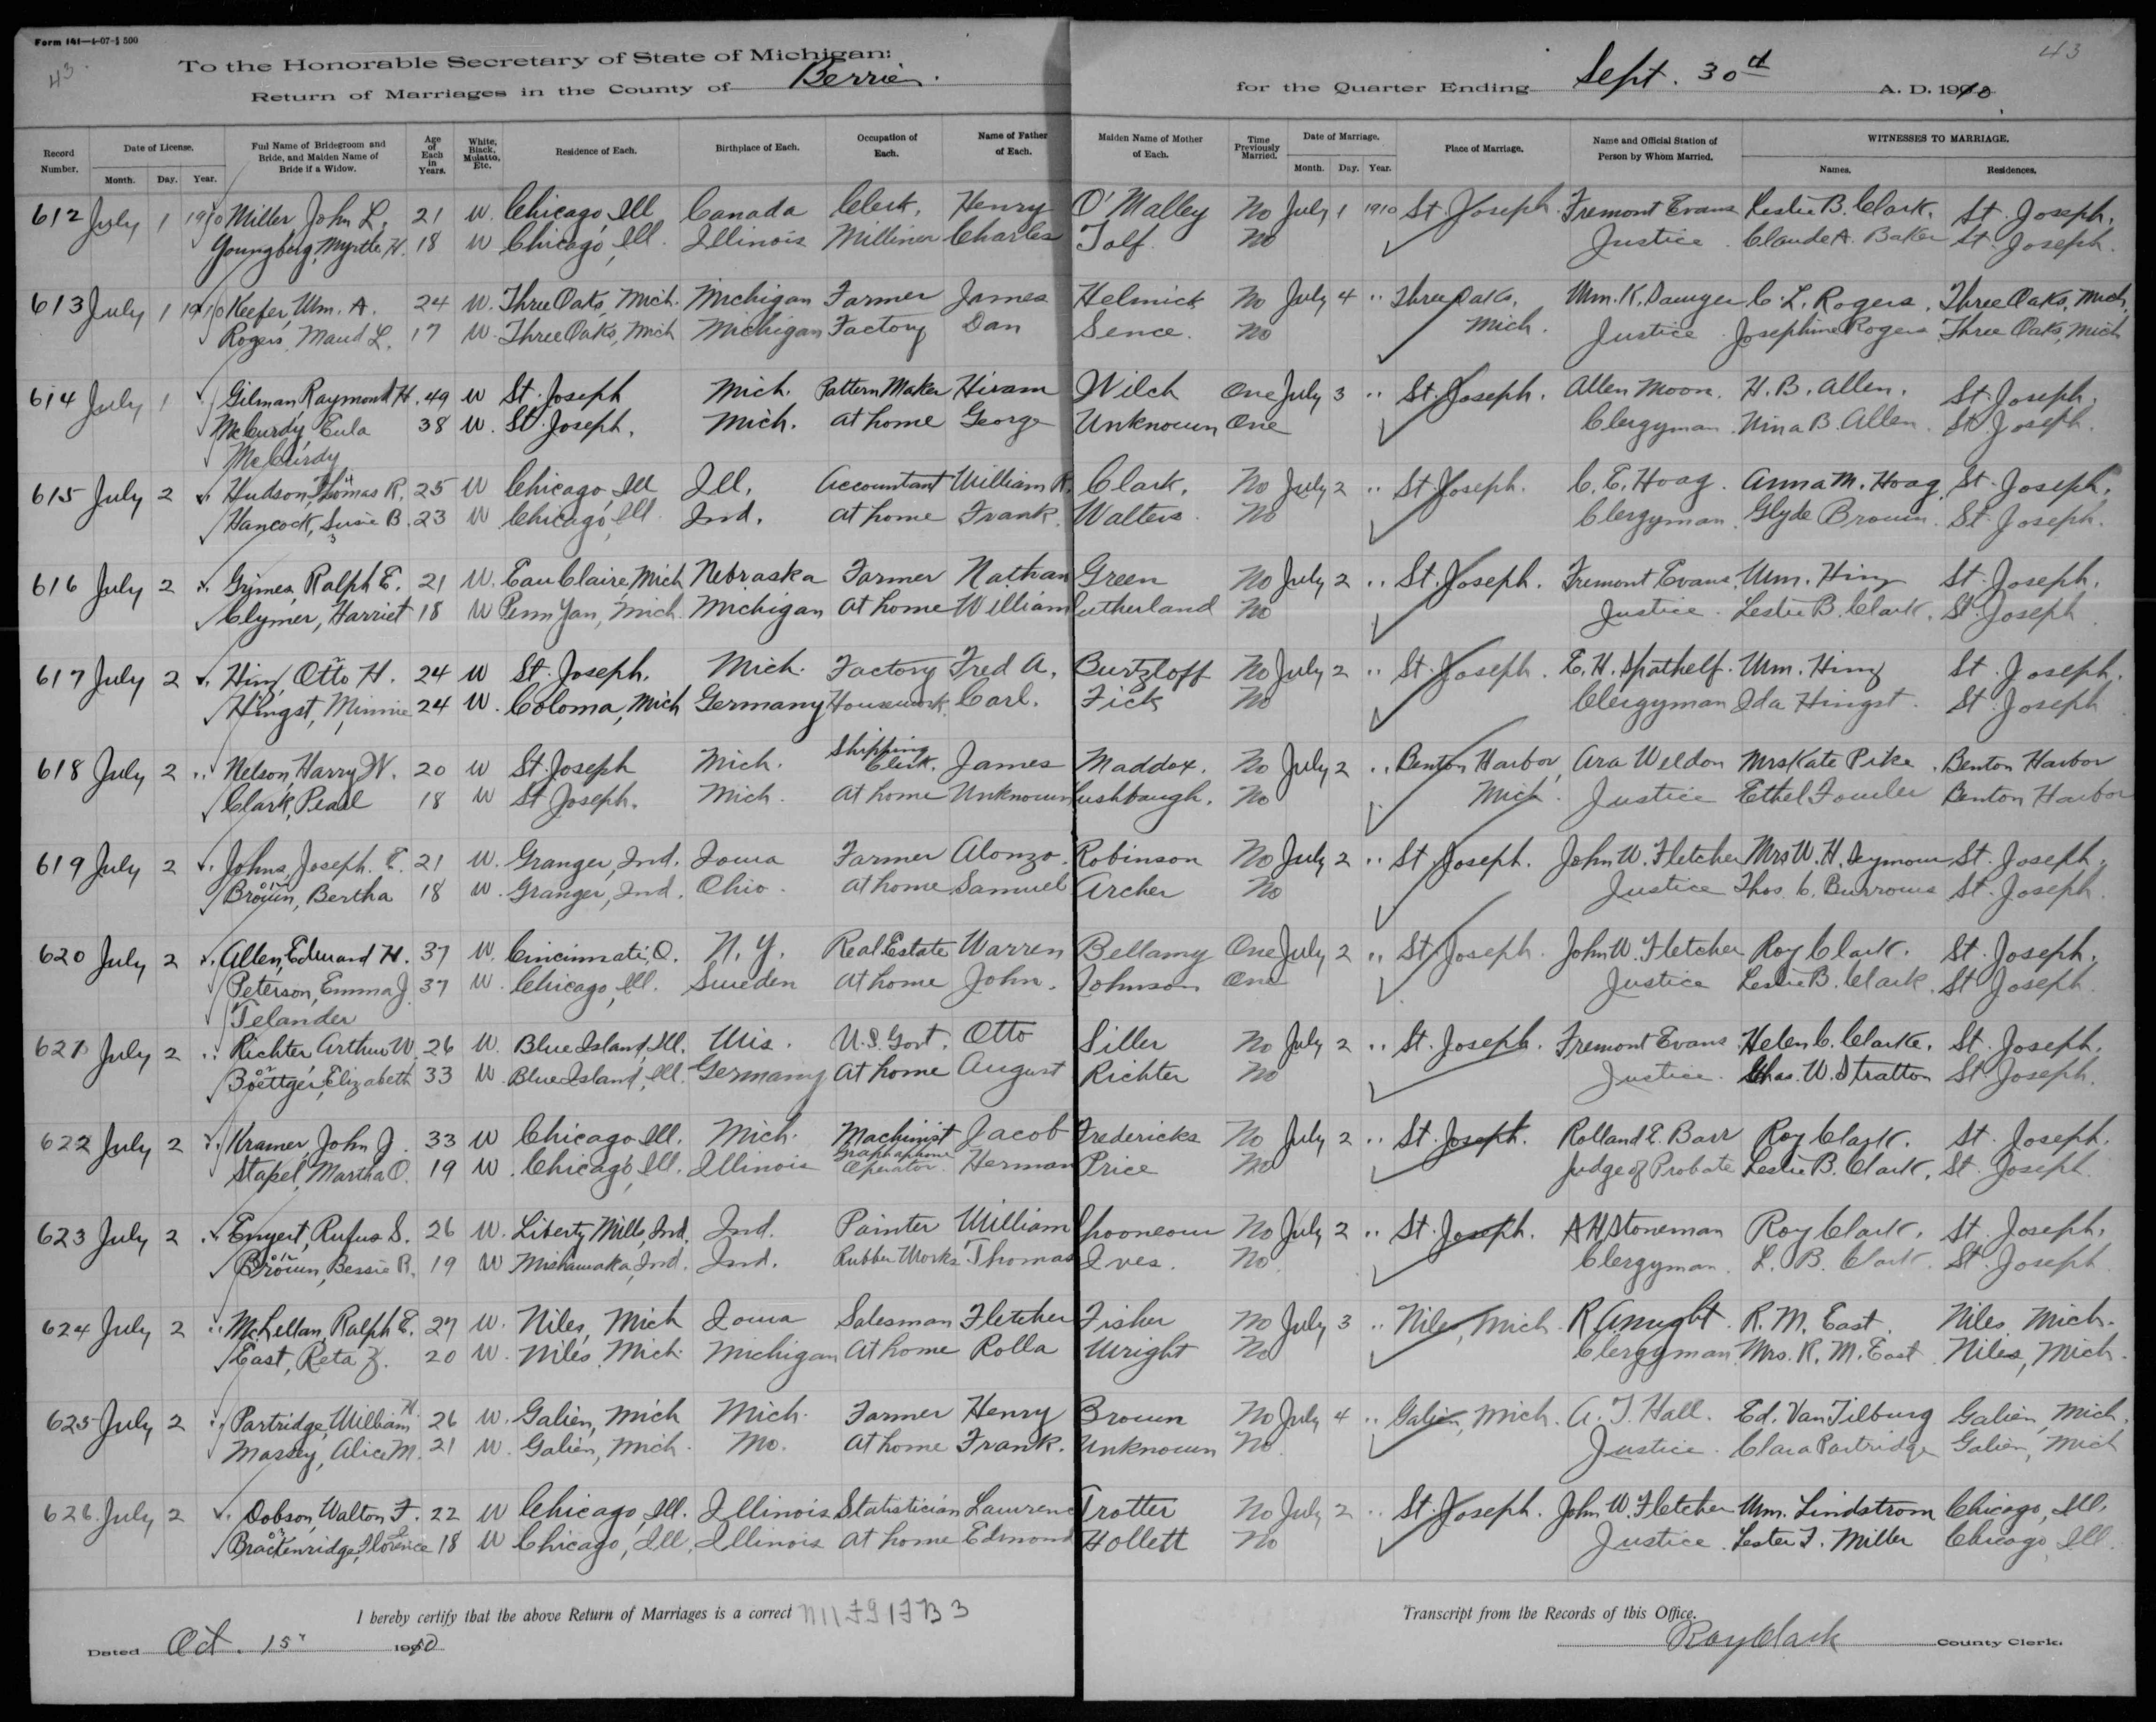 Form 141—4-07-1 500
43
To the Honorable Secretary of State of Michigan:
Return of Marriages in the County of Berrien.
for the Quarter Ending Sept. 30th A. D. 1910
43
Record Number. Date of License. Month. Day. Year. Full Name of Bridegroom and Bride, and Maiden Name of Bride if a Widow. Age of Each in Years. White, Black, Mulatto, Etc. Residence of Each. Birthplace of Each. Occupation of Each. Name of Father of Each. Maiden Name of Mother of Each. Time Previously Married. Date of Marriage. Month. Day. Year. Place of Marriage. Name and Official Station of Person by Whom Married. WITNESSES TO MARRIAGE. Names. Residences.
612 July 1 1910 Miller John L. 21 W. Chicago, Ill Canada Clerk. Henry O'Malley No July 1 1910 St. Joseph. Fremont Evans Leslie B. Clark. St. Joseph.
Youngberg, Myrtle H. 18 W Chicago, Ill. Illinois Milliner Charles Tolf. No Justice. Claude A. Baker St. Joseph.
613 July 1 1910 Keefer, Wm. A. 24 W. Three Oaks, Mich. Michigan Farmer James Helmick No July 4 " Three Oaks, Wm. K. Sawyer C. L. Rogers. Three Oaks, Mich.
Rogers, Maud L. 17 W. Three Oaks, Mich Michigan Factory Dan Sence. No Mich. Justice. Josephine Rogers Three Oaks, Mich
614 July 1 Gilman, Raymond H. 49 W St. Joseph Mich. Pattern Maker Hiram Wilch One July 3 " St. Joseph. Allen Moon. H. B. Allen. St. Joseph.
McCurdy, Eula 38 W. St. Joseph. Mich. At home George Unknown One Clergyman. Nina B. Allen. St. Joseph.
McCurdy
615 July 2 " Hudson, Thomas R. 25 W Chicago, Ill Ill. Accountant William R. Clark. No July 2 " St. Joseph. C. E. Hoag. Anna M. Hoag. St. Joseph.
Hancock, Susie B. 23 W Chicago, Ill. Ind. At home Frank. Walters. No Clergyman. Glyde Brown. St. Joseph.
616 July 2 " Grimes, Ralph E. 21 W. Eau Claire, Mich Nebraska Farmer Nathan Green No July 2 " St. Joseph. Fremont Evans. Wm. Hinz St. Joseph.
Clymer, Harriet 18 W Penn Yan, Mich. Michigan At home William Sutherland No Justice. Leslie B. Clark. St. Joseph.
617 July 2 " Hinz, Otto H. 24 W St. Joseph. Mich. Factory Fred A. Burtzloff No July 2 " St. Joseph. E. H. Spathelf. Wm. Hinz St. Joseph.
Hingst, Minnie 24 W. Coloma, Mich Germany Housework. Carl. Fick No Clergyman Ida Hingst. St. Joseph
618 July 2 " Nelson, Harry W. 20 W St. Joseph Mich. Shipping Clerk. James Maddox. No July 2 " Benton Harbor, Ara Weldon Mrs Kate Pike. Benton Harbor
Clark, Pearl 18 W St Joseph. Mich. At home Unknown Rushbaugh. No Mich. Justice Ethel Fowler Benton Harbor
619 July 2 " Johns, Joseph. E. 21 W. Granger, Ind. Iowa Farmer Alonzo. Robinson No July 2 " St. Joseph. John W. Fletcher Mrs W. H. Seymour St. Joseph.
Brown, Bertha 18 W. Granger, Ind. Ohio. At home Samuel Archer No Justice Thos. C. Burrows St. Joseph.
620 July 2 " Allen, Edward H. 37 W. Cincinnati, O. N. Y. Real Estate Warren Bellamy One July 2 " St. Joseph. John W. Fletcher Roy Clark. St. Joseph.
Peterson, Emma J. 37 W. Chicago, Ill. Sweden At home John. Johnson One Justice Leslie B. Clark. St. Joseph.
Telander
621 July 2 " Richter Arthur W. 26 W. Blue Island, Ill. Wis. U.S. Govt. Otto Siller No July 2 " St. Joseph. Fremont Evans Helen C. Clarke. St. Joseph.
Boettger, Elizabeth 33 W. Blue Island, Ill. Germany At home August Richter No Justice. Chas. W. Stratton St. Joseph.
622 July 2 " Kramer, John J. 33 W Chicago, Ill. Mich. Machinist Jacob Fredericks No July 2 " St. Joseph. Rolland E. Barr Roy Clark. St. Joseph.
Stapel, Martha O. 19 W. Chicago, Ill. Illinois Graphaphone Operator. Herman Price No Judge of Probate Leslie B. Clark. St. Joseph.
623 July 2 " Enyert, Rufus S. 26 W. Liberty Mills, Ind. Ind. Painter William No July 2 " St. Joseph. A H Stoneman Roy Clark. St. Joseph.
Brown, Bessie R. 19 W Mishawaka, Ind. Ind. Rubber Works. Thomas Ives. No. Clergyman. L. B. Clark. St. Joseph
624 July 2 " McLellan, Ralph E. 27 W. Niles, Mich Iowa Salesman Fletcher Fisher No July 3 " Niles, Mich. R. M. East. Niles, Mich.
East, Reta Z. 20 W. Niles, Mich. Michigan At home Rolla Wright No Clergyman Mrs. R. M. East. Niles, Mich.
625 July 2 " Partridge, William H. 26 W. Galien, Mich Mich. Farmer Henry Brown No July 4 " Galien, Mich. A. T. Hall. Ed. Van Tilburg Galien, Mich.
Massey, Alice M. 21 W. Galien, Mich. Mo. At home Frank. Unknown No Justice. Clara Partridge Galien, Mich
626. July 2 " Dobson, Walton F. 22 W Chicago, Ill. Illinois Statistician Lawrence Trotter No July 2 " St. Joseph. John W. Fletcher Wm. Lindstrom Chicago, Ill.
Brackenridge, Florence 18 W Chicago, Ill. Illinois At home Edmond Hollett No Justice. Lester F. Miller Chicago, Ill.
I hereby certify that the above Return of Marriages is a correct
Transcript from the Records of this Office.
Dated Oct. 15" 1910
Roy Clark County Clerk.